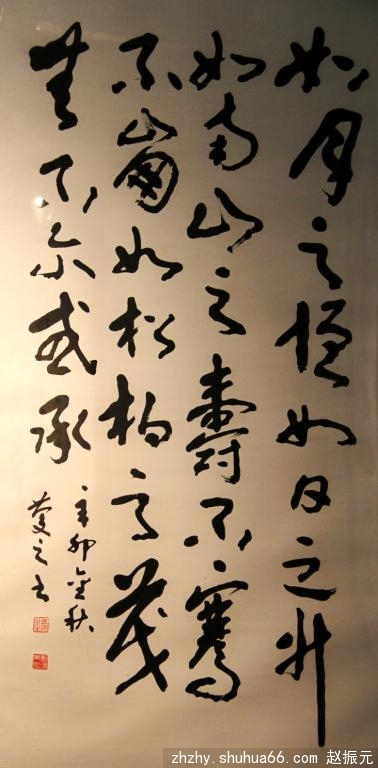 如月之恒如日之升
如南山之壽不騫
不崩如松柏之茂
無不尔或承
辛卯金秋
之书
zhzhy.shuhua66.com 赵振元